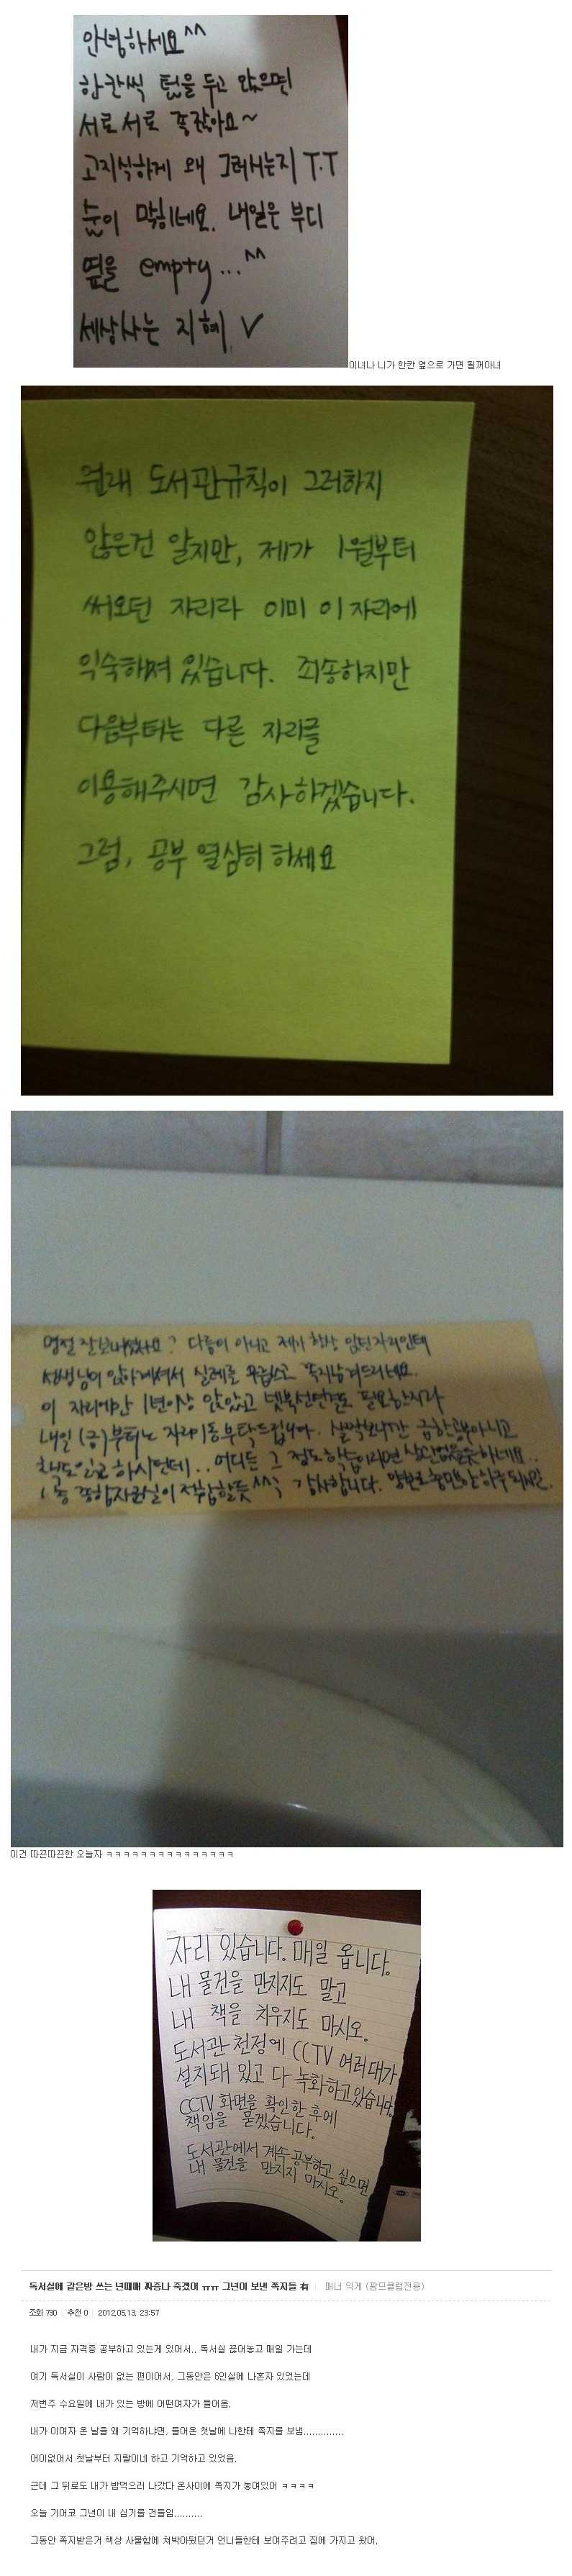 안녕하세요^^
한칸씩 텀을 두고 앉으면
서로서로 좋잖아요~
고지식하게 왜 그러시는지 T.T
숨이 막히네요. 내일은 부디
옆을 empty...^^
세상사는 지혜 V
이녀나 니가 한칸 옆으로 가면 될꺼아녀
원래 도서관규칙이 그러하지
않은건 알지만, 제가 1월부터
써오던 자리라 이미 이 자리에
익숙해져 있습니다. 죄송하지만
다음부터는 다른 자리를
이용해주시면 감사하겠습니다.
그럼, 공부 열심히 하세요
명절 잘보내셨나요? 다름이 아니고 제가 항상 앉던자리인데
선생님이 앉아계셔서 실례를 무릅쓰고 쪽지남겨드리네요.
이 자리에만 1년이상 앉았고
내일 (금)부터는 자리이동부탁드립니다.
책도일고 하시던데.. 어디든 그 정도 학습이라면 상관없을듯하네요..
1층 종합자료실이 적합할듯^^; 감사합니다.
이건 따끈따끈한 오늘자 ㅋㅋㅋㅋㅋㅋㅋㅋㅋㅋㅋㅋㅋㅋㅋ
자리 있습니다. 매일 옵니다.
내 물건을 만지지도 말고
내 책을 치우지도 마시오.
도서관 천정에 CCTV 여러대가
설치돼 있고 다 녹화하고있습니다.
CCTV 화면을 확인한 후에
책임을 묻겠습니다.
도서관에서 계속 공부하고 싶으면
내 물건을 만지지 마시오.
독서실에 같은방 쓰는 년때매 짜증나 죽겠어 ㅠㅠ 그년이 보낸 쪽지들 有 매너 익게 (팜므클럽전용)
조회 730 추천 0 2012.05.13. 23:57
내가 지금 자격증 공부하고 있는게 있어서.. 독서실 끊어놓고 매일 가는데
여기 독서실이 사람이 없는 편이어서, 그동안은 6인실에 나혼자 있었는데
저번주 수요일에 내가 있는 방에 어떤여자가 들어옴.
내가 이여자 온 날을 왜 기억하냐면. 들어온 첫날에 나한테 쪽지를 보냄.............
어이없어서 첫날부터 지랄이네 하고 기억하고 있었음.
근데 그 뒤로도 내가 밥먹으러 나갔다 온사이에 쪽지가 놓여있어 ㅋㅋㅋㅋ
오늘 기어코 그년이 내 심기를 건들임.........
그동안 쪽지받은거 책상 사물함에 쳐박아뒀던거 언니들한테 보여주려고 집에 가지고 왔어.